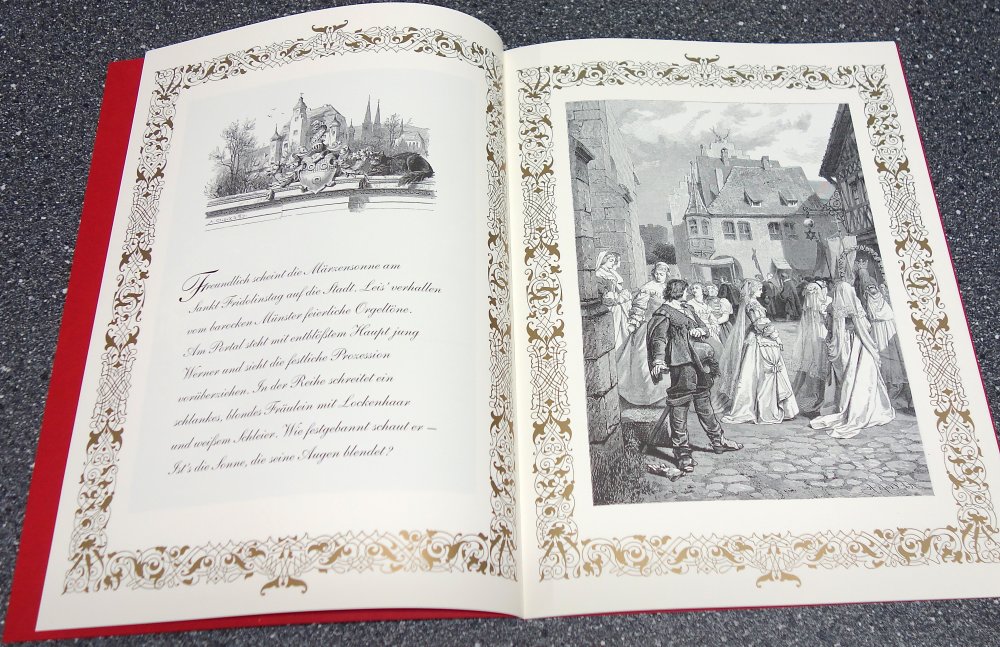 Freundlich scheint die Märzensonne am
Sankt Fridolinstag auf die Stadt. Leis' verhallen
vom barocken Münster feierliche Orgeltöne.
Am Portal steht mit entblößtem Haupt jung
Werner und sieht die festliche Prozession
vorüberziehen. In der Reihe schreitet ein
schlankes, blondes Fräulein mit Lockenhaar
und weißem Schleier. Wie festgebannt schaut er —
Ist's die Sonne, die seine Augen blendet?